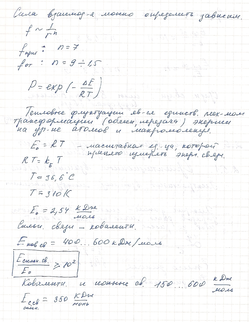 Сила взаимод-я можно определить зависим.
f ~ 1/rⁿ
f прит : n = 7
f от : n = 9 ÷ 15
P = exp(- ΔE/RT)
Тепловые флуктуации яв-ся единств. мех-мом
трансформации (обмен, передача) энергии
на ур-не атомов и макромолекул
E₀ = RT - масштабная ед-ца, которой
принято измерять энерг. связи.
RT = k_б T
T = 36,6°C
T = 310K
E₀ = 2,54 кДж/моль
Сильн. связи - ковалентн.
E ков св = 400...600 кДж/моль
E сильн. св. / E₀ ≥ 10²
Ковалентн. и ионные св. 150...600 кДж/моль
E = 350 кДж/моль